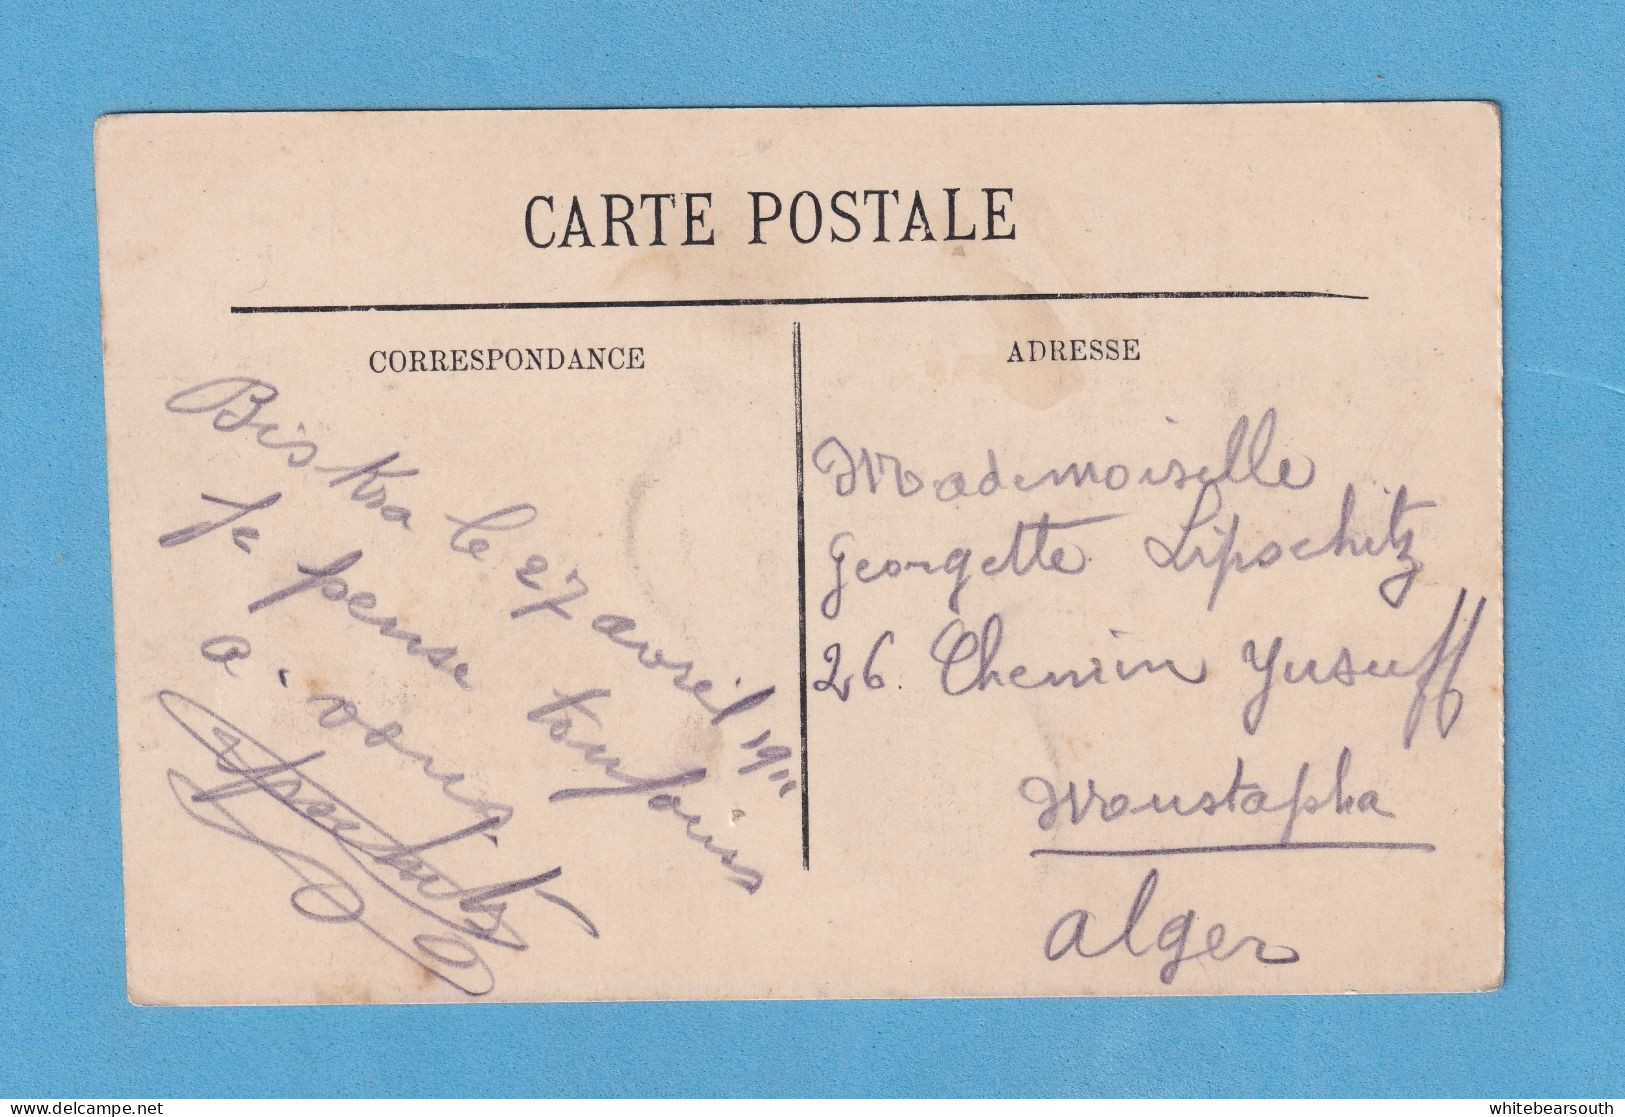 CARTE POSTALE
CORRESPONDANCE
ADRESSE
Biskra le 27 avril 1911
Je pense toujours
a vous.
Mademoiselle
Georgette Lipschitz
26. Chemin Yusuff
Moustapha
Alger
whitebearsouth